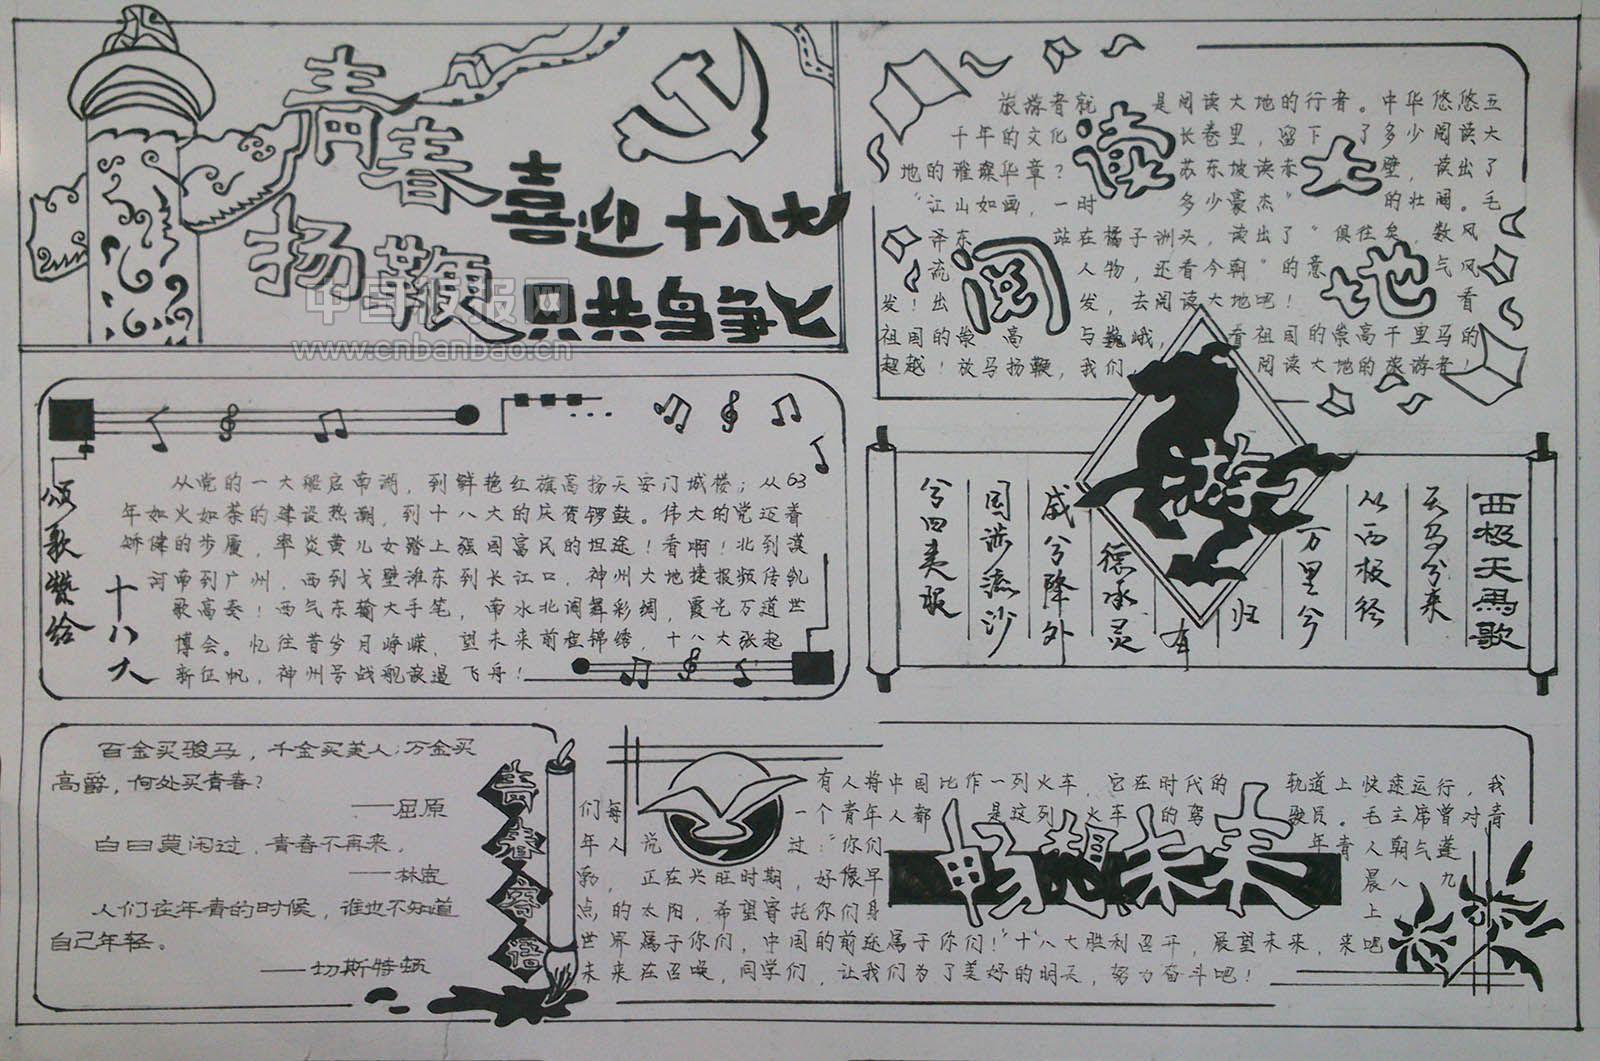 青春
扬鞭
喜迎十八大
中国板报网
www.cnbanbao.cn
旅游者就是阅读大地的行者。中华悠悠五
千年的文化长卷里，留下了多少阅读大
地的璀璨华章？苏东坡读赤壁，读出了
“江山如画，一时多少豪杰”的壮阔。毛
泽东站在橘子洲头，读出了“俱往矣，数风
流人物，还看今朝”的意气风
发！出发，去阅读大地吧！看
祖国的崇高与巍峨，看祖国的崇高千里马的
超越！放马扬鞭，我们，阅读大地的旅游者！
阅读大地
颂歌赞给
十八大
从党的一大砸启南湖，到鲜艳红旗高扬天安门城楼；从63
年如火如荼的建设热潮，到十八大的庆贺锣鼓。伟大的党迈着
矫健的步履，率炎黄儿女踏上强国富民的坦途！看啊！北到漠
河南到广州，西到戈壁滩东到长江口，神州大地捷报频传凯
歌高奏！西气东输大手笔，南水北调舞彩绸，霞光万道世
博会。忆往昔岁月峥嵘，望未来前程锦绣，十八大张起
新征帆，神州号战舰浪遏飞舟！
游
西极天马歌
天马兮来
从西极经
万里兮
归
有
德承灵
威兮降外
国涉流沙
兮四夷服
百金买骏马，千金买美人；万金买
高爵，何处买青春？
——屈原
白日莫闲过，青春不再来，
——林宽
人们在年青的时候，谁也不知道
自己年轻。
——切斯特顿
青春寄语
有人将中国比作一列火车，它在时代的轨道上快速运行，我
们每一个青年人都是这列火车的驾驶员。毛主席曾对青
年人说过：“你们年青人朝气蓬
勃，正在兴旺时期，好像早晨八九
点的太阳，希望寄托你们身上
世界属于你们，中国的前途属于你们！”十八大胜利召开，展望未来，来吧
未来在召唤，同学们，让我们为了美好的明天，努力奋斗吧！
畅想未来